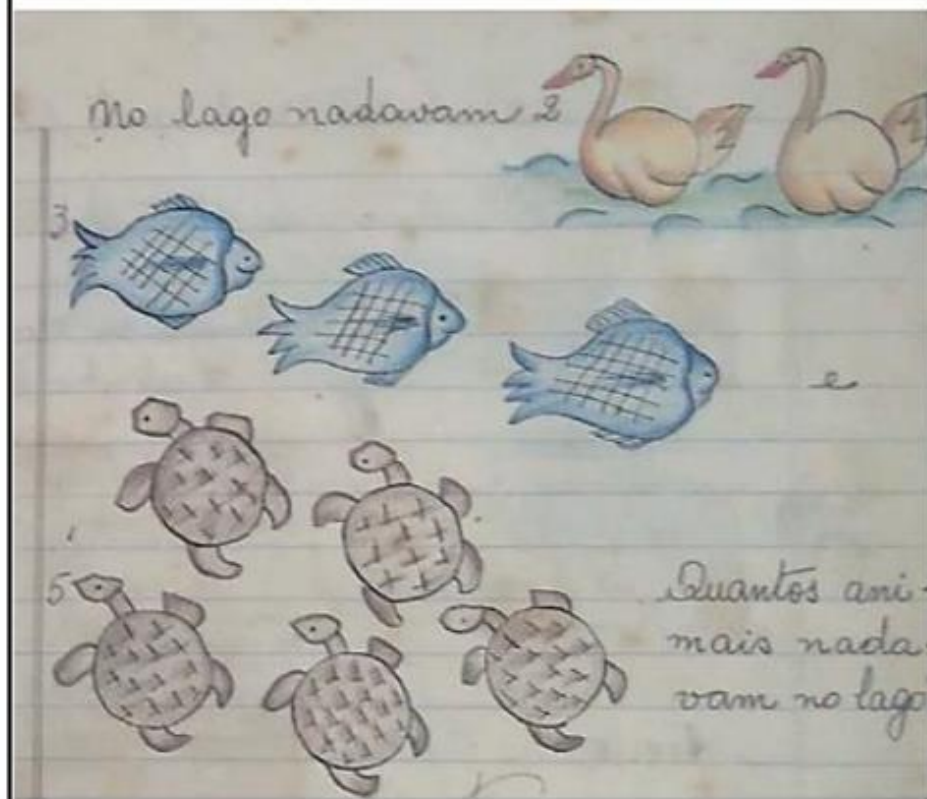 No lago nadavam 2
3
e
5
Quantos ani-
mais nada-
vam no lago